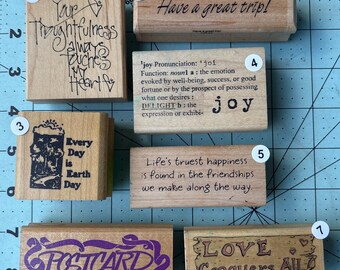 Your
Thoughtfulness
always
touches
my
Heart
Have a great trip!
4
'joy Pronunciation: 'joi
Function: noun 1 a : the emotion
evoked by well-being, success, or good
fortune or by the prospect of possessing
what one desires :
DELIGHT b : the
expression or exhibi-
joy
3
Every
Day
is
Earth
Day
5
Life's truest happiness
is found in the friendships
we make along the way.
POSTCARD
7
LOVE
Conquers All
2
3
4
5
6